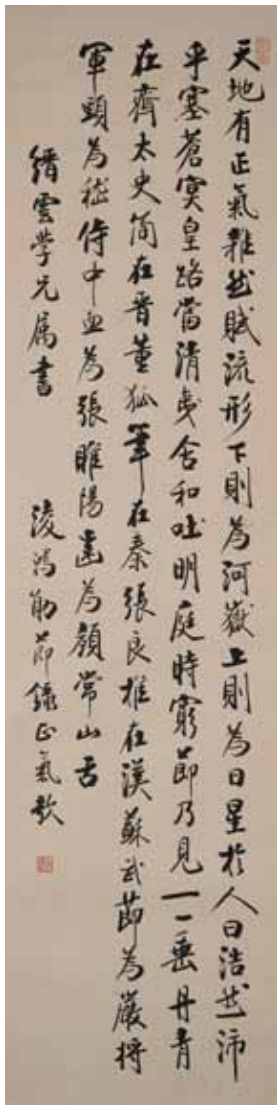 天地有正氣雜然賦流形下則為河嶽上則為日星於人曰浩然沛
乎塞蒼冥皇路當清夷含和吐明庭時窮節乃見一一垂丹青
在齊太史简在晉董狐筆在秦張良椎在漢蘇武節為嚴將
軍頭為嵇侍中血為張睢陽齒為顏常山舌
縉雲学兄属書
淩鴻勛節錄正氣歌